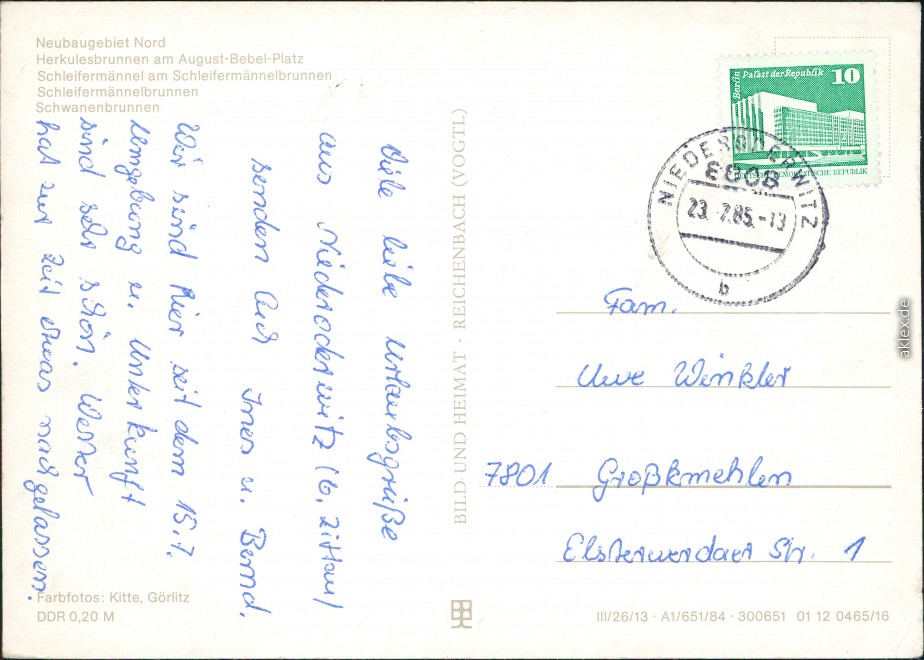 Neubaugebiet Nord
Herkulesbrunnen am August-Bebel-Platz
Schleifermännel am Schleifermännelbrunnen
Schleifermännelbrunnen
Schwanenbrunnen
Viele liebe Urlaubsgrüße
aus Niederoderwitz (b. Zittau)
senden Euch Ines u. Bernd.
Wir sind hier seit dem 15.7.
Umgebung u. Unterkunft
sind sehr schön. Wetter
hat zur Zeit etwas nachgelassen.
Farbfotos: Kitte, Görlitz
DDR 0,20 M
BILD- UND HEIMAT · REICHENBACH (VOGTL)
Berlin Palast der Republik 10
DEUTSCHE DEMOKRATISCHE REPUBLIK
NIEDERODERWITZ
8803
23. 7.85.-13
b
Fam.
Uwe Winkler
7801 Großkmehlen
Elsterwerdaer Str. 1
III/26/13 · A1/651/84 · 300651 01 12 0465/16
aklex.de